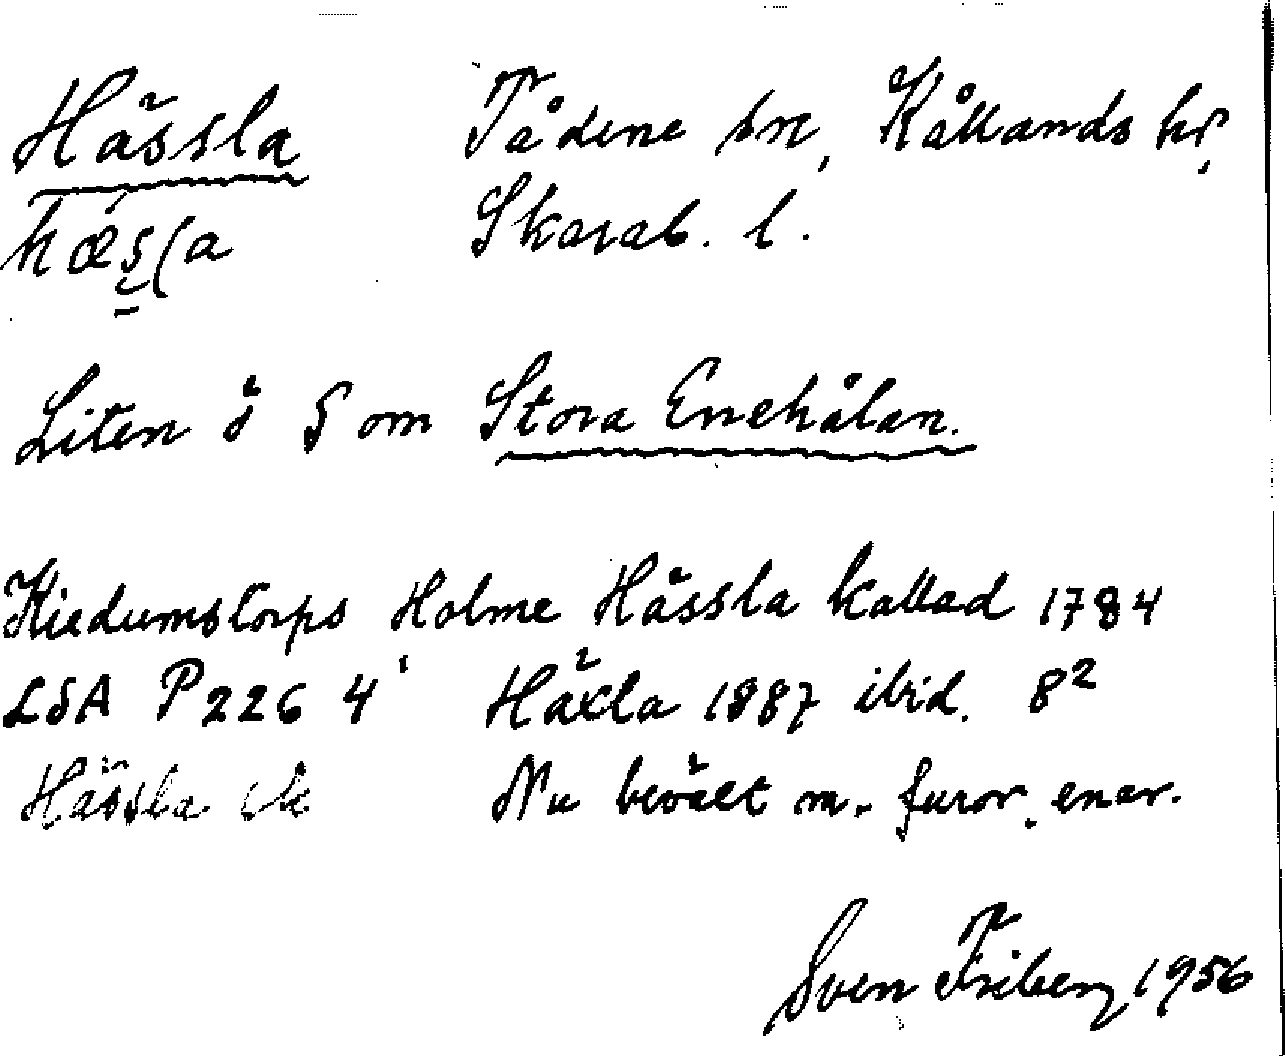 Hässla Tådene sn, Kållands hd,
Skarab. l.
Liten ö S om Stora Enehålan.
Kiedumstorps Holme Hässla kallad 1784
LSA P 226 4¹ Häxla 1887 ibid. 8²
Hässla ek Nu beväxt m. furor, enar.
Sven Friberg 1956